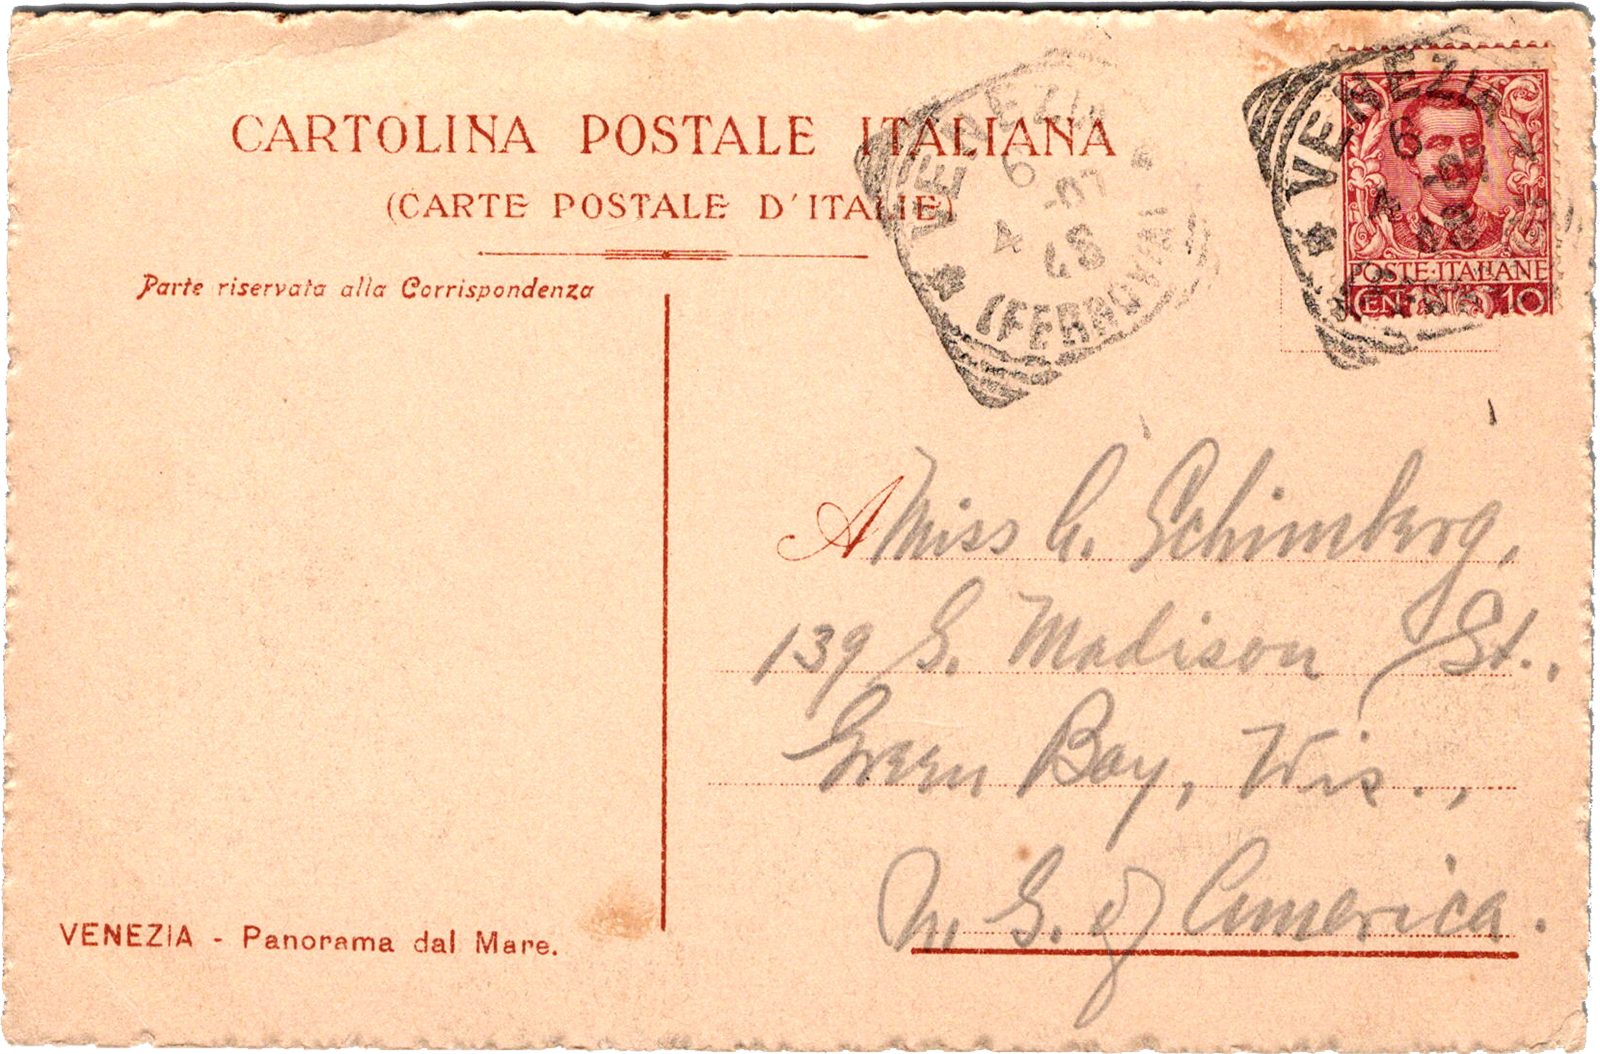 CARTOLINA POSTALE ITALIANA
(CARTE POSTALE D'ITALIE)
Parte riservata alla Corrispondenza
VENEZIA
6
4 -07
(FERROVIA)
VENEZIA
6
4
POSTE·ITALIANE
CENT. 10
A Miss G. Schimberg,
139 S. Madison St.,
Green Bay, Wis.,
U. S. of America.
VENEZIA - Panorama dal Mare.